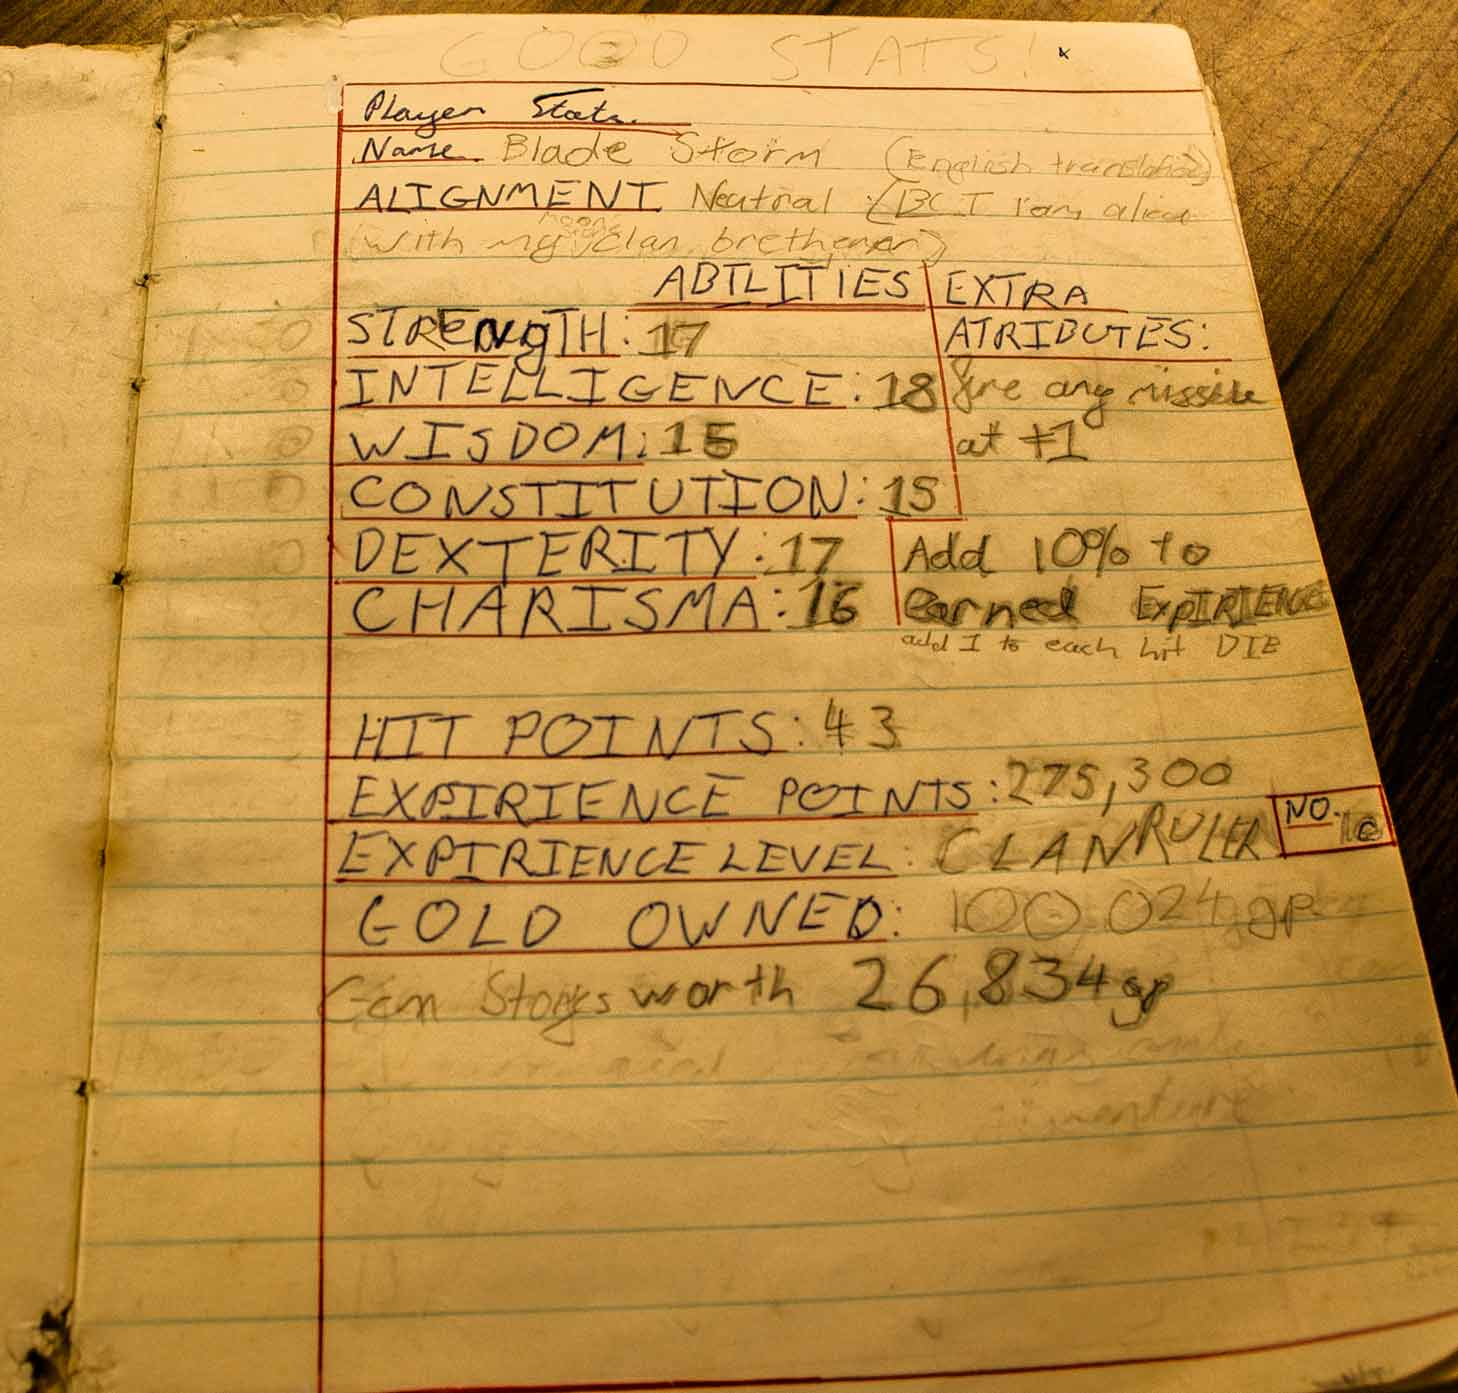 GOOD STATS!
Player Stats.
Name Blade Storm (English translation)
ALIGNMENT Neutral (BCT I am
moon
(with my clan bretheman)
ABILITIES EXTRA
STRENgTH: 17 ATRIBUTES:
INTELLIGENCE: 18 fire any missile
WISDOM: 15 at +1
CONSTITUTION: 15
DEXTERITY: 17 Add 10% to
CHARISMA: 16 earned EXPIRIENCE
add 1 to each hit DIE
HIT POINTS: 43
EXPIRIENCE POINTS: 275,300
EXPIRIENCE LEVEL: CLANRULER NO.
GOLD OWNED: 100,024 gp
Gem Stones worth 26,834 gp